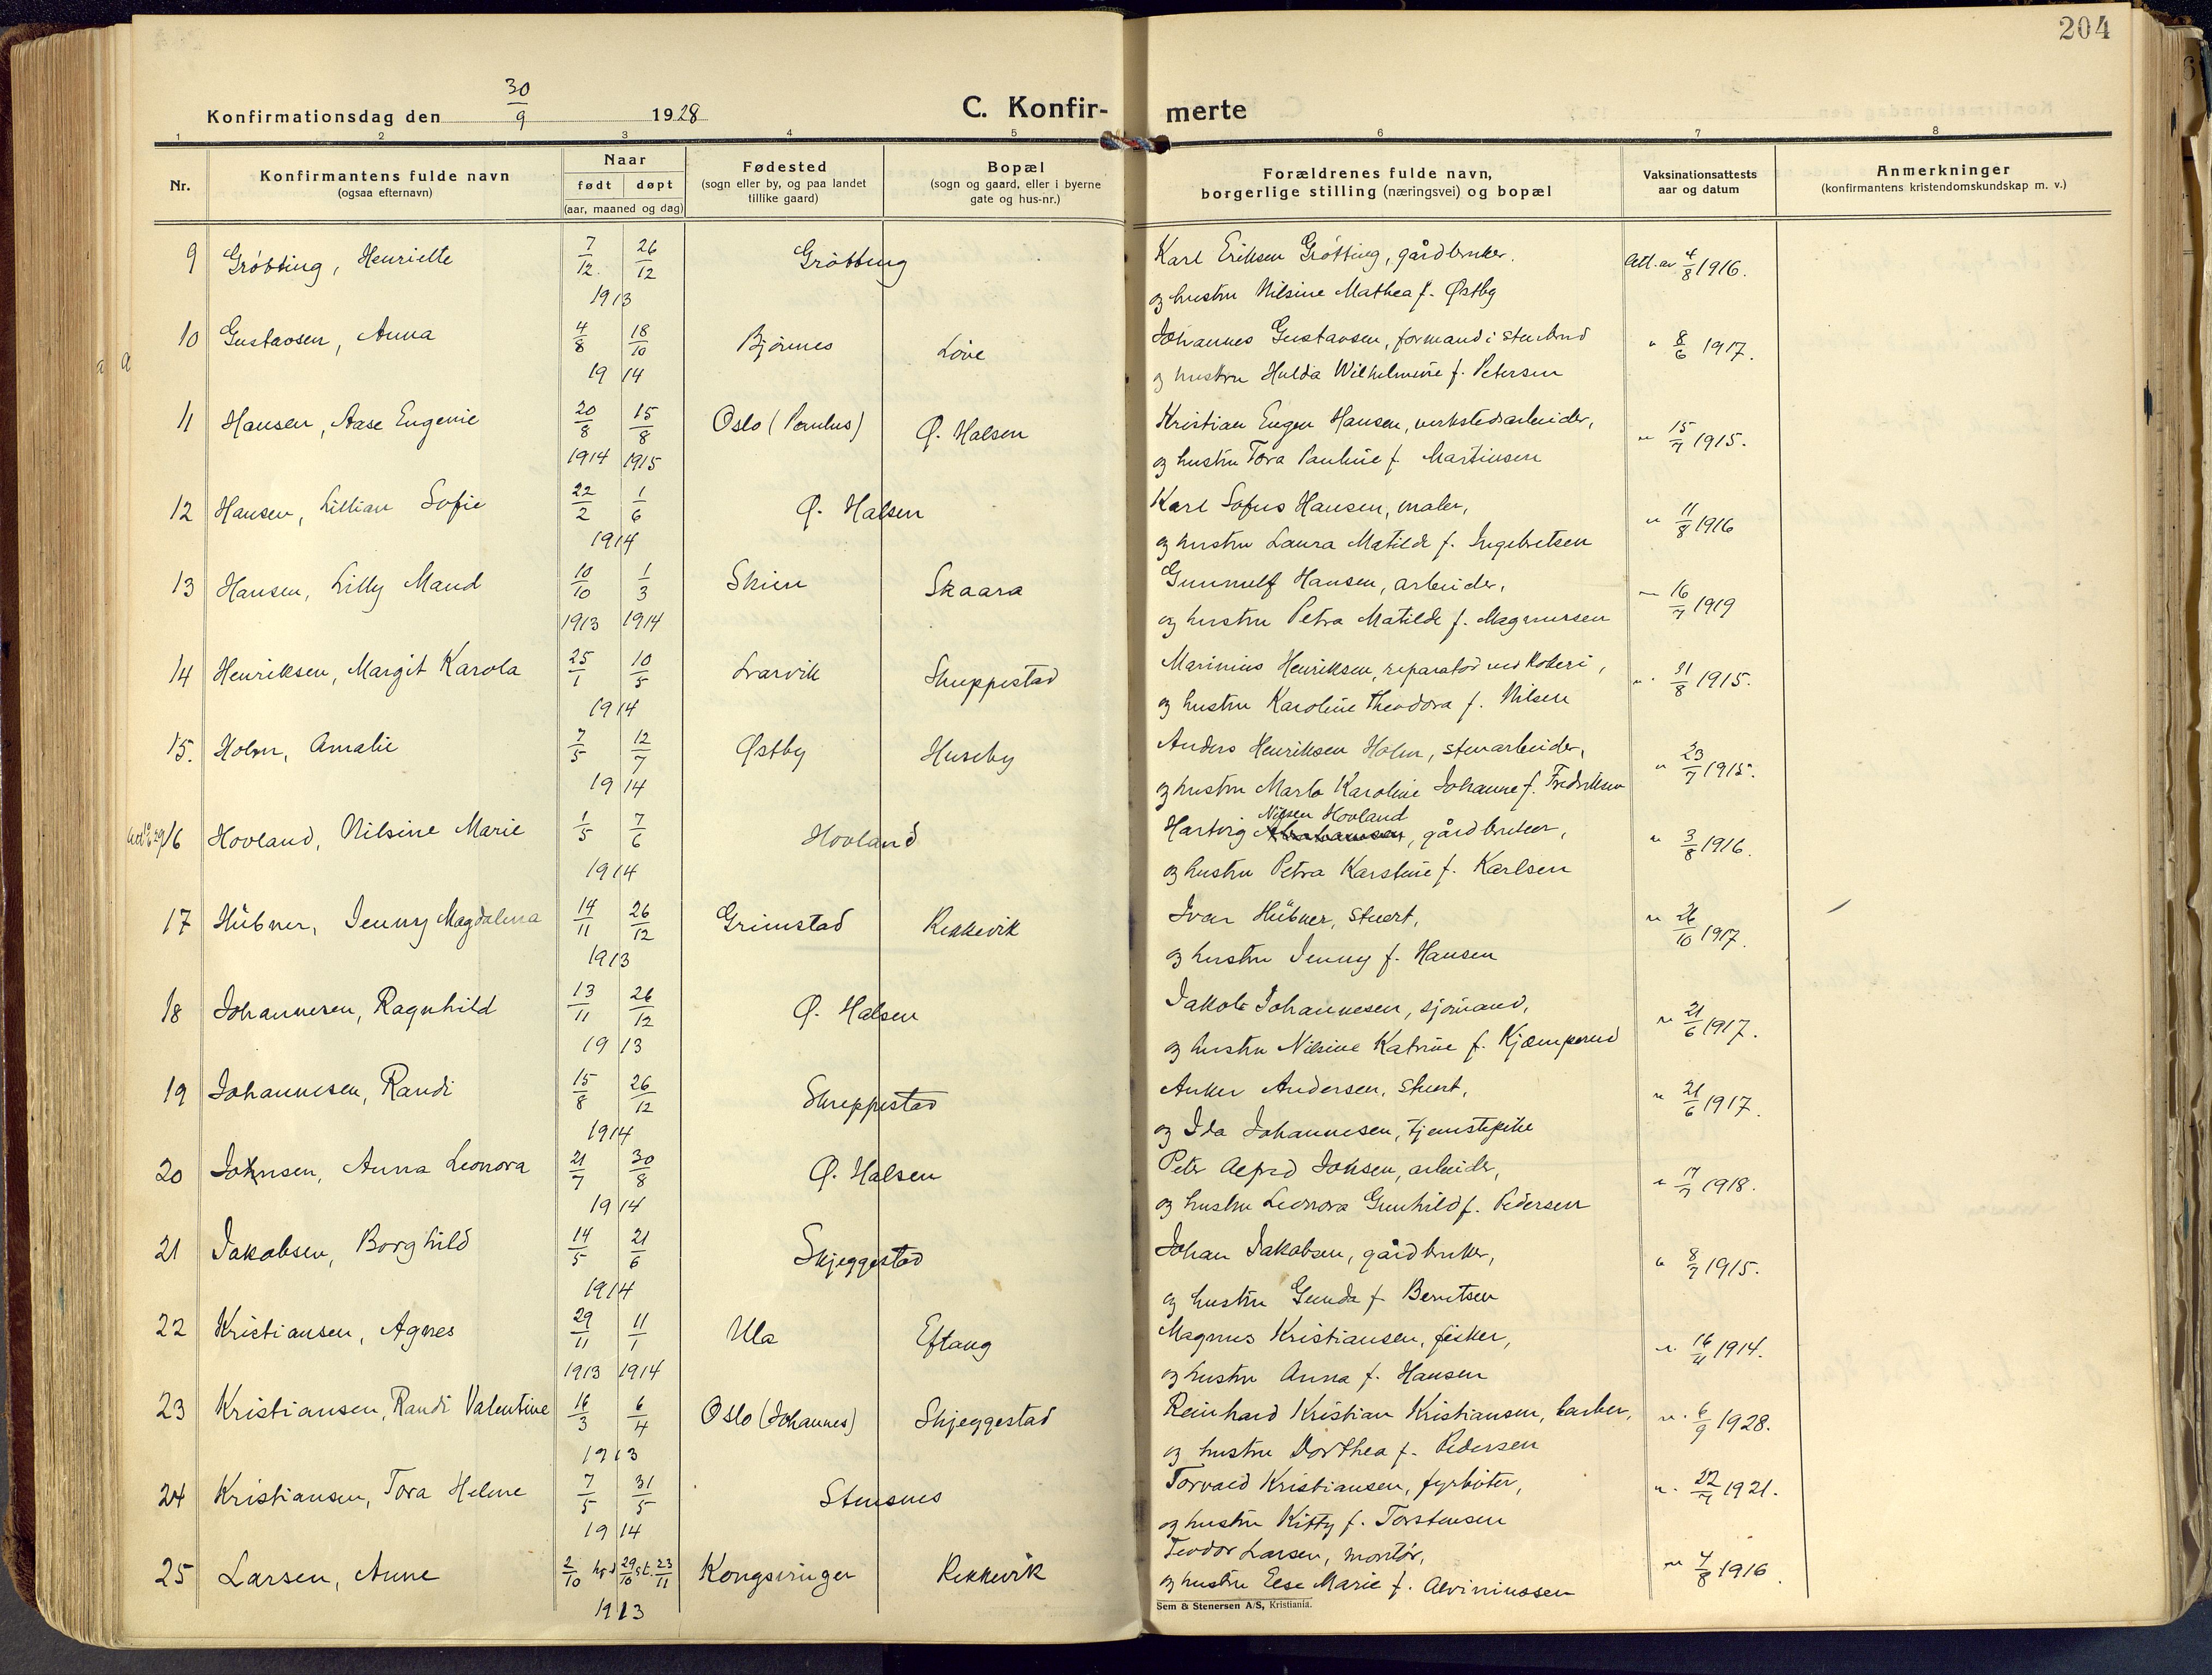 204
30/9
Konfirmationsdag den 1928 C. Konfir- merte
1 2 3 4 5 6 7 8
Nr. Konfirmantens fulde navn (ogsaa efternavn) Naar født døpt (aar, maaned og dag) Fødested (sogn eller by, og paa landet tillike gaard) Bopæl (sogn og gaard, eller i byerne gate og hus-nr.) Forældrenes fulde navn, borgerlige stilling (næringsvei) og bopæl Vaksinationsattests aar og datum Anmerkninger (konfirmantens kristendomskundskap m. v.)
9 Grötting, Henriette 7/12 26/12 Grötting Karl Eriksen Grötting, gårdbruker. Att. av 4/8 1916.
1913 og hustru Nilsine Mathea f. Østby
10 Gustavsen, Anna 4/8 18/10 Bjönnes Löve Johannes Gustavsen, formand i stenbrud " 8/6 1917.
1914 og hustru Hulda Wilhelmine f. Petersen
11 Hansen, Aase Eugenie 20/8 15/8 Oslo (Paulus) Ø. Halsen Kristian Eugen Hansen, verkstedsarbeider, " 15/7 1915.
1914 1915 og hustru Tora Pauline f. Martinsen
12 Hansen, Lillian Sofie 22/2 1/6 Ø. Halsen Karl Sofus Hansen, maler, " 11/8 1916
1914 og hustru Laura Matilde f. Ingebretsen
13 Hansen, Lilly Maud 10/10 1/3 Skien Skaara Gunnulf Hansen, arbeider, " 16/7 1919
1913 1914 og hustru Petra Matilde f. Magnussen
14 Henriksen, Margit Karola 25/1 10/5 Larvik Skreppestad Marinius Henriksen, reparatör ved Roderi, " 31/8 1915.
1914 og hustru Karoline Theodora f. Nilsen
15. Holm, Amalie 7/5 12/7 Østby Huseby Anders Henriksen Holm, stenarbeider, " 23/7 1915.
1914 og hustru Marta Karoline Johanne f. Fredriksen
Nilsen Hovland
16 Hovland, Nilsine Marie 1/5 7/6 Hovland Hartvig Abrahamsen, gårdbruker, " 3/8 1916.
1914 og hustru Petra Karstine f. Karlsen
17 Hübner, Jenny Magdalena 14/11 26/12 Grimstad Rekkevik Ivar Hübner, stuert, " 26/10 1917.
1913 og hustru Jenny f. Hansen
18 Johannesen, Ragnhild 13/11 26/12 Ø. Halsen Jakob Johannesen, sjömand, " 21/6 1917.
1913 og hustru Nilsine Katrine f. Kjæmperud
19 Johannesen, Randi 15/8 26/12 Skreppestad Anker Andersen, stuert, " 21/6 1917.
1914 og Ida Johannesen, tjenstepike
20 Johnsen, Anna Leonora 21/7 30/8 Ø. Halsen Peter Alfred Johsen, arbeider, " 17/7 1918.
1914 og hustru Leonora Gunhild f. Pedersen
21 Jakobsen, Borghild 14/5 21/6 Skjeggestad Johan Jakobsen, gårdbruker, " 8/7 1915.
1914 og hustru Gunda f. Berntsen
22 Kristiansen, Agnes 29/11 11/1 Ula Eftang Magnus Kristiansen, fisker, " 16/11 1914.
1913 1914 og hustru Anna f. Hansen
23 Kristiansen, Randi Valentine 16/3 6/4 Oslo (Johannes) Skjeggestad Reinhard Kristian Kristiansen, barber, " 6/9 1928.
1913 og hustru Dorthea f. Pedersen
24 Kristiansen, Tora Helene 7/5 31/5 Stensnes Torvald Kristiansen, fyrböter, " 22/7 1921.
1914 og hustru Kitty f. Torstensen
25 Larsen, Anne 2/10 hjd 29/10 st. 23/11 Kongsvinger Rekkevik Teodor Larsen, montör, " 4/8 1916.
1913 og hustru Else Marie f. Alviniussen
Sem & Stenersen A/S, Kristiania.